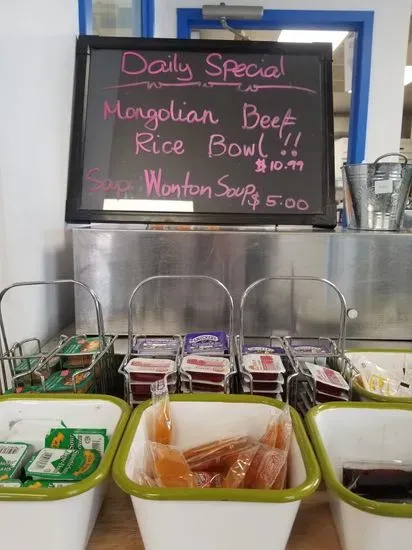 Daily Special
Mongolian Beef
Rice Bowl !!
$10.99
Soup: Wonton Soup
$5.00